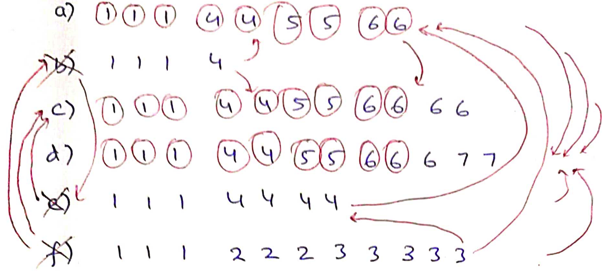 a) 1 1 1 4 4 5 5 6 6
b) 1 1 1 4
c) 1 1 1 4 4 5 5 6 6 6 6
d) 1 1 1 4 4 5 5 6 6 6 7 7
e) 1 1 1 4 4 4 4
f) 1 1 1 2 2 2 3 3 3 3 3